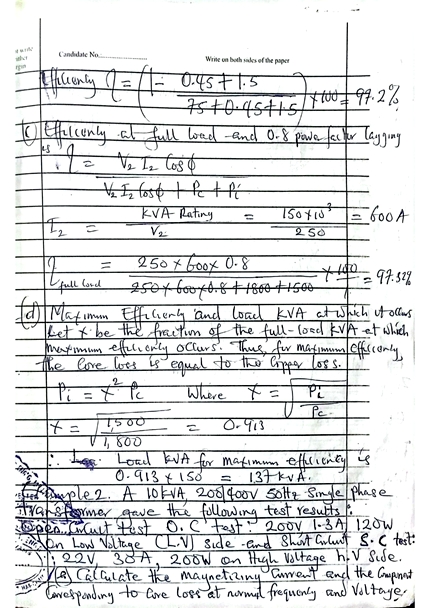 Candidate No..............
Write on both sides of the paper
Efficiency η = (1 - 0.45 + 1.5 / 75 + 0.45 + 1.5) × 100 = 97.2%
(c) Efficiency at full load and 0.8 power factor lagging
is η = V2 I2 Cosϕ / V2 I2 Cosϕ + Pc + Pi
I2 = KVA Rating / V2 = 150×10³ / 250 = 600A
η full load = 250 × 600 × 0.8 / 250 × 600 × 0.8 + 1800 + 1500 × 100 = 97.32%
(d) Maximum Efficiency and load KVA at which it occurs
Let x be the fraction of the full-load KVA at which
maximum efficiency occurs. Thus, for maximum efficiency,
the Core loss is equal to the Copper loss.
Pi = x² Pc Where x = √Pi/Pc
x = √1,500/1,800 = 0.913
∴ Load KVA for maximum efficiency is
0.913 × 150 = 137 KVA.
Example 2. A 10KVA, 200/400V 50Hz Single phase
transformer gave the following test results:
Open Circuit test O.C test: 200V 1.3A, 120W
on Low Voltage (L.V) side and Short Circuit S.C test:
22V, 30A, 200W on High Voltage h.v side.
(a) Calculate the Magnetizing Current and the Component
Corresponding to Core Loss at normal frequency and Voltage.